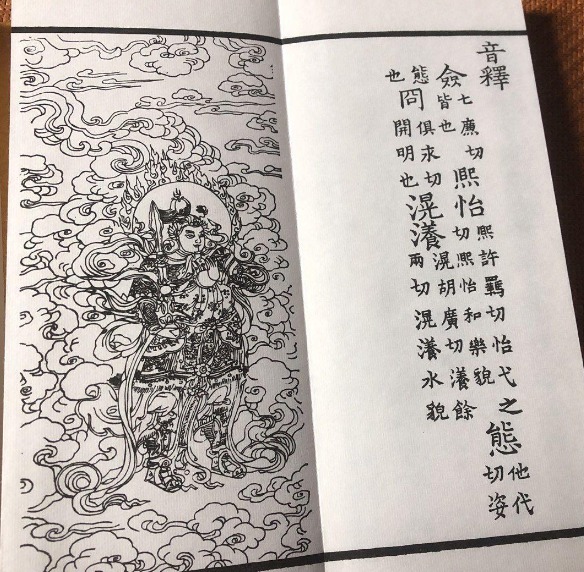 音釋
僉七廉切皆也熙怡熙許羈切怡弋之切熙怡和樂貌態他代切姿
態也冏俱永切開明也滉瀁滉胡廣切瀁餘兩切滉瀁水貌